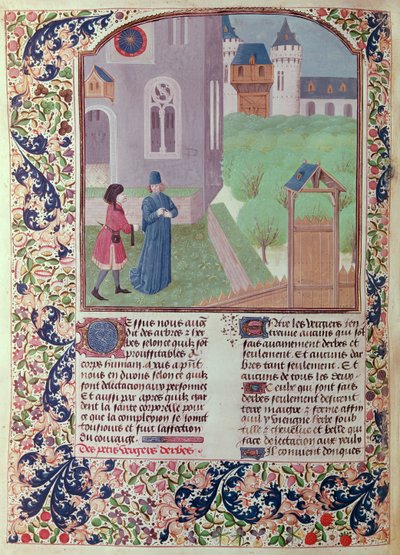 Dessus nous auons
dit des arbres et her
bes selonc quilz sont
prouffitables a
corps humain. Mais a p̄nt
nous en dirons selonc quilz
sont delectacion aux personnes
et aussi par apres quilz gar
dent la sante corporele pour
ce que la complexion se joint
tousiours et suit laffection
du couraige.
Des petis vergiers derbes
Entre les vergiers len
treuue aucuns qui sont
fais dherbes et
seulement. Et aucuns dar
bres tant seulement. Et
aucuns de tous les deux.
Ceulx qui sont fais
derbes seulement desirent
terre maigre et ferme affin
quil y viengne herbe soub
tille et deliee et elle qui
face delectacion aux yeulx
Il conuient doncques